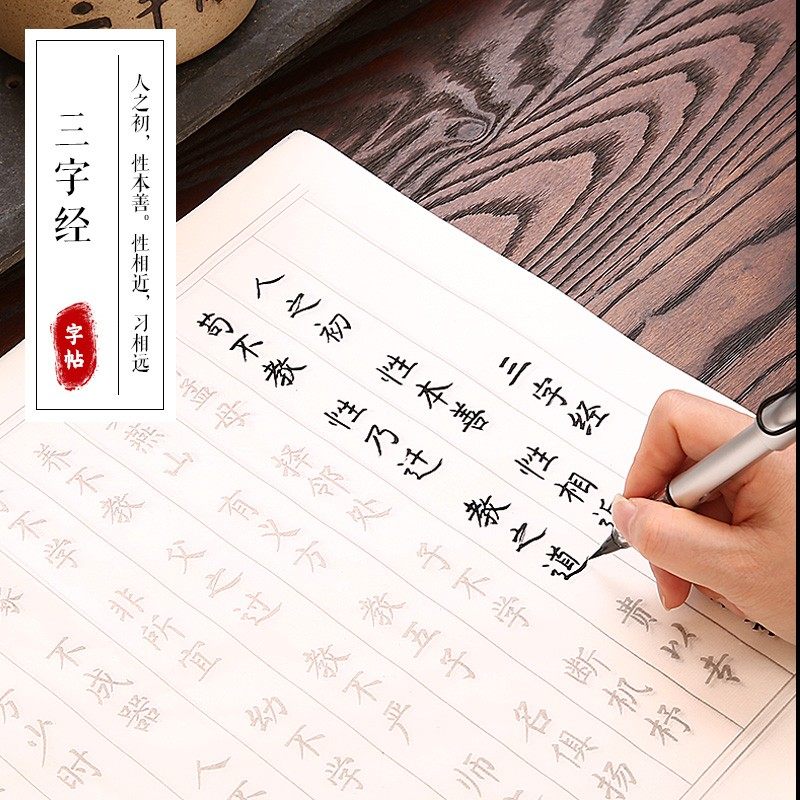 人之初，性本善。性相近，习相远
三字经
字帖
三字经
人之初 性本善 性相近
苟不教 性乃迁 教之道 贵以专
孟母 择邻处 子不学 断机杼
燕山 有义方 教五子 名俱扬
养不教 父之过 教不严 师
不学 非所宜 幼不学
不成器 人
方少时